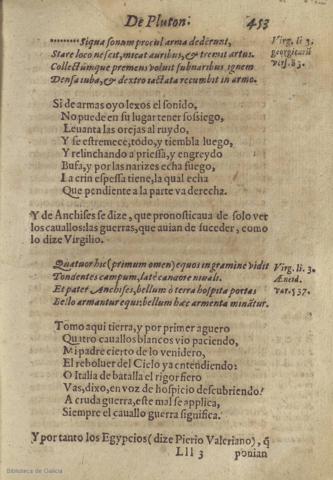 De Pluton. 453
Siqua sonum procul arma dederunt,
Stare loco nescit, micat auribus, & tremit artus.
Collectumque premens voluit sub naribus ignem
Densa iuba, & dextro iactata recumbit in armo.
Virg. li 3.
georgicarū
vers. 83.
Si de armas oyo lexos el sonido,
No puede en su lugar tener sossiego,
Leuanta las orejas al ruydo,
Y se estremece, todo, y tiembla luego,
Y relinchando a priessa, y engreydo
Bufa, y por las narizes echa fuego,
La crin espessa tiene, la qual echa
Que pendiente a la parte va derecha.
Y de Anchises se dize, que pronosticaua de solo ver
los cauallos: las guerras, que auian de suceder, como
lo dize Virgilio.
Quatuor hic (primum omen) equos in gramine vidit
Tondentes campum, latè canaore niuali.
Et pater Anchises, bellum ò terra hospita portas
Bello armantur equi: bellum hæc armenta minātur.
Virg. li. 3.
Æneid.
vers. 537.
Tomo aqui tierra, y por primer aguero
Quatro cauallos blancos vio paciendo,
Mi padre cierto de lo venidero,
El reboluer del Cielo ya entendiendo:
O Italia de batalla el rigor fiero
Vas, dixo, en voz de hospicio descubriendo?
A cruda guerra, este mal se applica,
Siempre el cauallo guerra significa.
Y por tanto los Egypcios (dize Pierio Valeriano), q̃
Lll 3 ponian
Biblioteca de Galicia